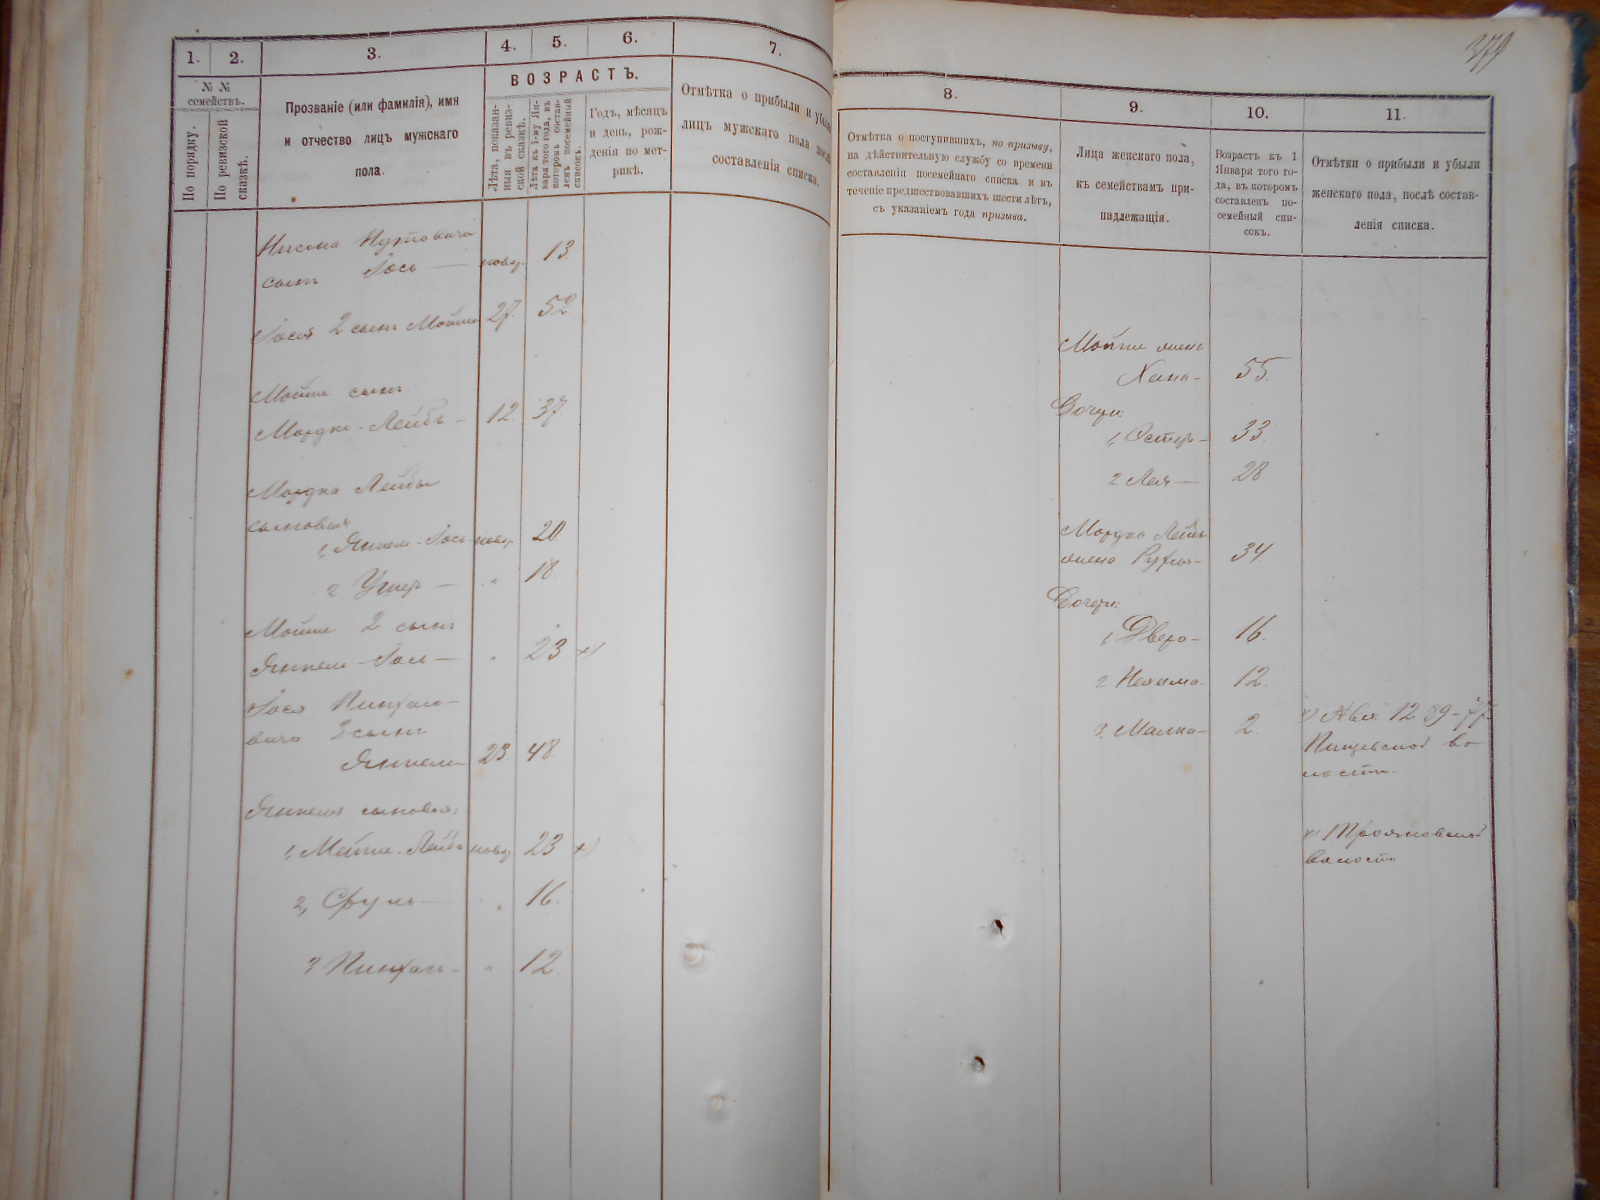 379
1. 2. 3. 4. 5. 6. 7.
№ №
семействъ.
По порядку.
По ревизской
сказкѣ.
Прозваніе (или фамилія), имя
и отчество лицъ мужскаго
пола.
ВОЗРАСТЪ.
Лѣта, показан-
ныя въ ревиз-
ской сказкѣ.
Лѣта къ 1-му Ян-
варя того года, въ
которомъ состав-
ленъ посемейный
списокъ.
Годъ, мѣсяцъ
и день, рож-
денія по мет-
рикѣ.
Отмѣтка о прибыли и убыли
лицъ мужскаго пола послѣ
составленія списка.
сынъ Іось — новор. 13
Іося 2 сынъ Мойше 27. 52
Мойше сынъ
Мордко-Лейбъ — 12. 37
Мордко Лейбы
сыновья
1, Янкель-Іось новор 20
2 Ушер — " 18
Мойше 2 сынъ
Янкель-Іось — " 23 x)
Іося Пинхасо-
вича 3 сынъ
Янкель — 23 48.
Янкеля сыновья:
1, Мойше-Лейбъ новор 23 x)
2, Сруль — " 16.
3 Пинхас — " 12.
8. 9. 10. 11.
Отмѣтка о поступившихъ, по призыву,
на дѣйствительную службу со времени
составленія посемейнаго списка и въ
теченіе предшествовавшихъ шести лѣтъ,
съ указаніемъ года призыва.
Лица женскаго пола,
къ семействамъ при-
надлежащія.
Возрастъ къ 1
Января того го-
да, въ которомъ
составленъ по-
семейный спи-
сокъ.
Отмѣтки о прибыли и убыли
женскаго пола, послѣ состав-
ленія списка.
Мойше жена
Хана — 55.
Дочери:
1, Эстер — 33.
2 Лея — 28
Мордко Лейбы
жена Рухля — 34
Дочери:
1, Двера — 16.
2 Нехама — 12.
3, Малка — 2.
волости.
x) Трояновской
волости